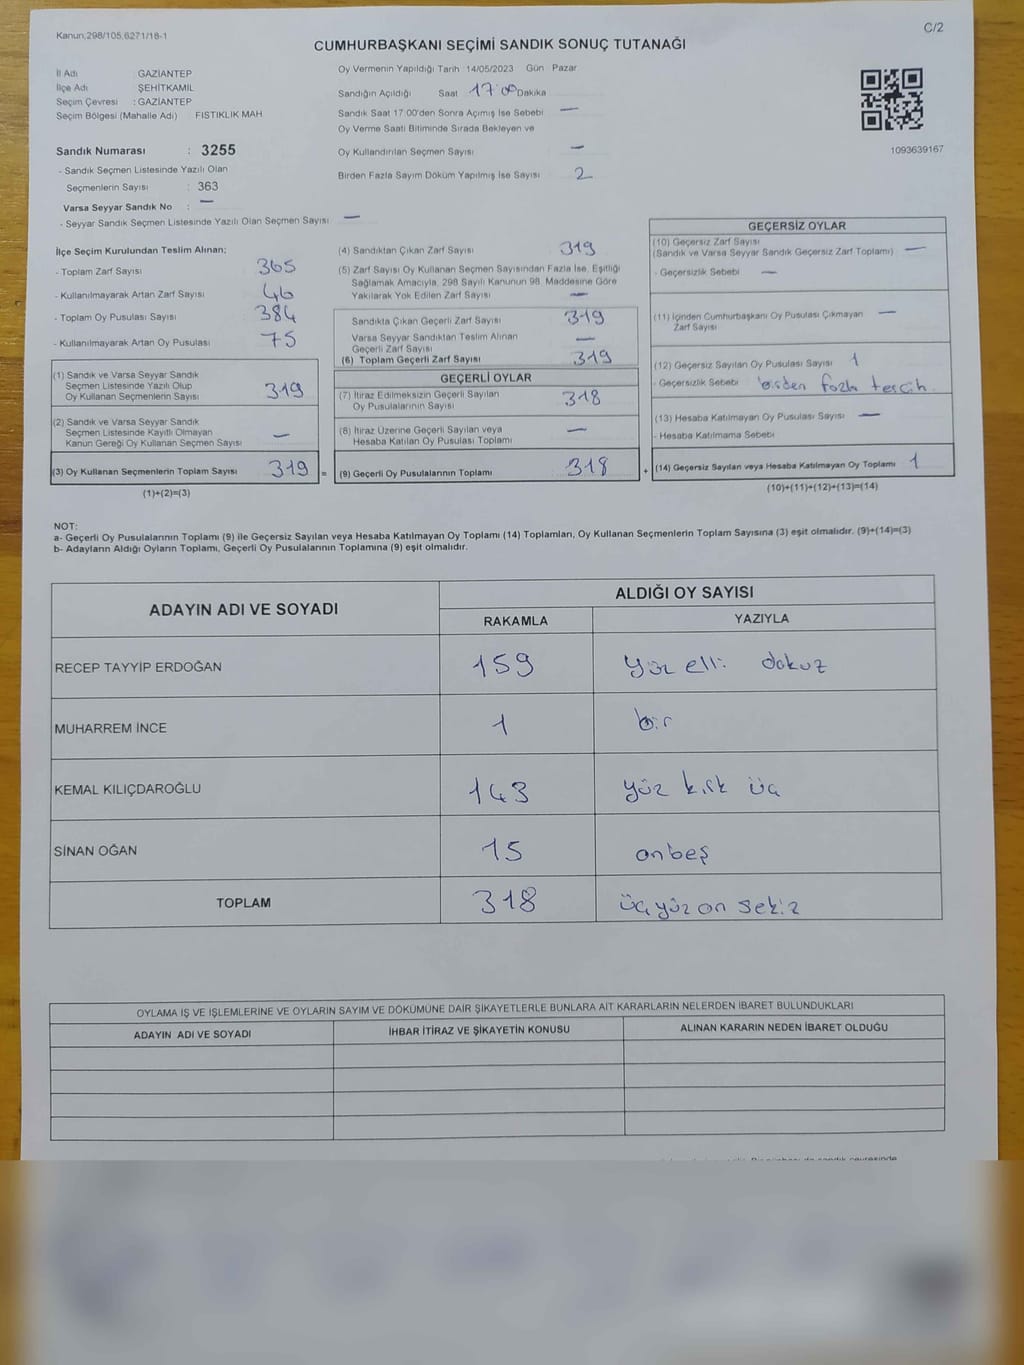 Kanun;298/105,6271/18-1
C/2
CUMHURBAŞKANI SEÇİMİ SANDIK SONUÇ TUTANAĞI
İl Adı GAZİANTEP
İlçe Adı ŞEHİTKAMİL
Seçim Çevresi : GAZİANTEP
Seçim Bölgesi (Mahalle Adı) FISTIKLIK MAH
Oy Vermenin Yapıldığı Tarih 14/05/2023 Gün Pazar
Sandığın Açıldığı Saat 17:00 Dakika
Sandık Saat 17:00'den Sonra Açımış İse Sebebi —
Oy Verme Saati Bitiminde Sırada Bekleyen ve
Oy Kullandırılan Seçmen Sayısı —
Birden Fazla Sayım Döküm Yapılmış İse Sayısı 2
1093639167
Sandık Numarası : 3255
- Sandık Seçmen Listesinde Yazılı Olan
Seçmenlerin Sayısı : 363
Varsa Seyyar Sandık No : —
- Seyyar Sandık Seçmen Listesinde Yazılı Olan Seçmen Sayısı —
İlçe Seçim Kurulundan Teslim Alınan;
- Toplam Zarf Sayısı 365
- Kullanılmayarak Artan Zarf Sayısı 46
- Toplam Oy Pusulası Sayısı 384
- Kullanılmayarak Artan Oy Pusulası 75
(1) Sandık ve Varsa Seyyar Sandık
Seçmen Listesinde Yazılı Olup
Oy Kullanan Seçmenlerin Sayısı 319
(2) Sandık ve Varsa Seyyar Sandık
Seçmen Listesinde Kayıtlı Olmayan
Kanun Gereği Oy Kullanan Seçmen Sayısı —
(3) Oy Kullanan Seçmenlerin Toplam Sayısı 319 =
(1)+(2)=(3)
(4) Sandıktan Çıkan Zarf Sayısı 319
(5) Zarf Sayısı Oy Kullanan Seçmen Sayısından Fazla İse, Eşitliği
Sağlamak Amacıyla, 298 Sayılı Kanunun 98. Maddesine Göre
Yakılarak Yok Edilen Zarf Sayısı —
Sandıkta Çıkan Geçerli Zarf Sayısı 319
Varsa Seyyar Sandıktan Teslim Alınan
Geçerli Zarf Sayısı —
(6) Toplam Geçerli Zarf Sayısı 319
GEÇERLİ OYLAR
(7) İtiraz Edilmeksizin Geçerli Sayılan
Oy Pusulalarının Sayısı 318
(8) İtiraz Üzerine Geçerli Sayılan veya
Hesaba Katılan Oy Pusulası Toplamı —
(9) Geçerli Oy Pusulalarının Toplamı 318 +
GEÇERSİZ OYLAR
(10) Geçersiz Zarf Sayısı
(Sandık ve Varsa Seyyar Sandık Geçersiz Zarf Toplamı) —
- Geçersizlik Sebebi —
(11) İçinden Cumhurbaşkanı Oy Pusulası Çıkmayan
Zarf Sayısı —
(12) Geçersiz Sayılan Oy Pusulası Sayısı 1
- Geçersizlik Sebebi birden fazla tercih.
(13) Hesaba Katılmayan Oy Pusulası Sayısı —
- Hesaba Katılmama Sebebi
(14) Geçersiz Sayılan veya Hesaba Katılmayan Oy Toplamı 1
(10)+(11)+(12)+(13)=(14)
NOT:
a- Geçerli Oy Pusulalarının Toplamı (9) ile Geçersiz Sayılan veya Hesaba Katılmayan Oy Toplamı (14) Toplamları, Oy Kullanan Seçmenlerin Toplam Sayısına (3) eşit olmalıdır. (9)+(14)=(3)
b- Adayların Aldığı Oyların Toplamı, Geçerli Oy Pusulalarının Toplamına (9) eşit olmalıdır.
ADAYIN ADI VE SOYADI ALDIĞI OY SAYISI
RAKAMLA YAZIYLA
RECEP TAYYİP ERDOĞAN 159 yüz elli dokuz
MUHARREM İNCE 1 bir
KEMAL KILIÇDAROĞLU 143 yüz kırk üç
SİNAN OĞAN 15 onbeş
TOPLAM 318 üçyüz on sekiz
OYLAMA İŞ VE İŞLEMLERİNE VE OYLARIN SAYIM VE DÖKÜMÜNE DAİR ŞİKAYETLERLE BUNLARA AİT KARARLARIN NELERDEN İBARET BULUNDUKLARI
ADAYIN ADI VE SOYADI İHBAR İTİRAZ VE ŞİKAYETİN KONUSU ALINAN KARARIN NEDEN İBARET OLDUĞU